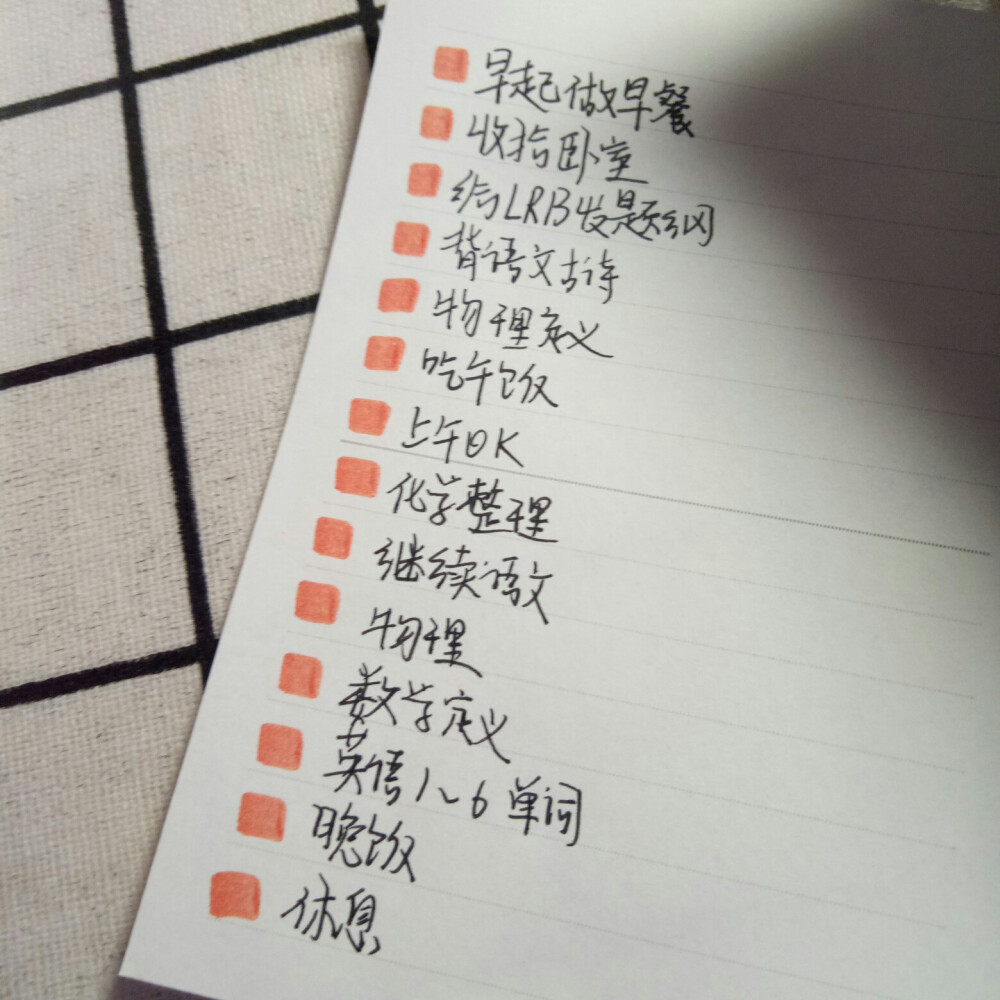 早起做早餐
收拾卧室
给LRB发题纲
背语文古诗
物理定义
吃午饭
上午OK
化学整理
继续语文
物理
数学定义
英语1~6单词
晚饭
休息